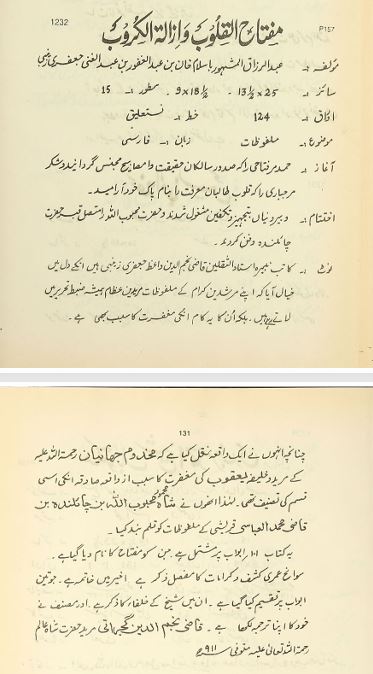 1232
P157
مفتاح القلوب وازالة الکروب
مولفہ :۔ عبدالرزاق المشہور باسلام خان بن عبدالغفور بن عبدالغنی جعفری زینبی
سائز :۔ 25×13½ ۔ 18½×9 ۔ سطور :۔ 15
اوراق :۔ 124 خط :۔ نستعلیق
موضوع :۔ ملفوظات زبان :۔ فارسی
آغاز :۔ حمد مرفتاحی را کہ صدور سالکان حقیقت وا مصابیح مجلس گردانید و شکر
مر جباری را کہ قلوب طالبان معرفت را بنام پاک خود آرامید۔
اختتام :۔ و بیرونیاں بتجہیز و تکفین مشغول شدند و حضرت محبوب اللہ را متصل قبر حضرت
چائلندہ دفن کردند ۔
نوٹ :۔ کاتب نبیرہ استاد الثقلین قاضی نجم الدین واعظ جعفری زینبی ہیں انکے دل میں
خیال آیا کہ اپنے مرشدین کرام کے ملفوظات مریدین عظام ہمیشہ ضبط تحریر میں
لاتے رہے ہیں ۔ بلکہ اُن کا یہ کام انکی مغفرت کا سبب بھی ہے ۔
131
چنانچہ انہوں نے ایک واقعہ نقل کیا ہے کہ مخدوم جہانیاں رحمۃ اللہ علیہ
کے مرید و خلیفہ یعقوب کی مغفرت کا سبب از واقعہ صادقہ انکی اسی
قسم کی تصنیف تھی۔ لہٰذا انھوں نے شاہ محبوب اللہ بن چائلندہ بن
قاضی محمد العباسی قریشی کے ملفوظات کو قلم بند کیا ۔
یہ کتاب ابواب پر مشتمل ہے جن کو مفتاح کا نام دیا گیا ہے ۔
سوانح عمری کشف و کرامات کا مفصل ذکر ہے ۔ اخیر میں خاتمہ ہے ۔ جو تین
ابواب پر تقسیم کیا گیا ہے ۔ ان میں شیخ کے خلفاء کا ذکر ہے ۔ اور مصنف نے
خود کا اپنا ترجمہ لکھا ہے ۔ قاضی نجم الدین گجراتی مرید حضرت شاہ عالم
رحمۃ اللہ تعالیٰ علیہ متوفی ۹۱۱ھ